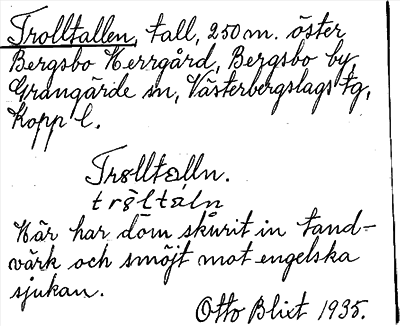 Trolltallen, tall, 250 m. öster
Bergsbo Herrgård, Bergsbo by
Grangärde sn, Västerbergslags tg,
Kopp l.
Trolltalln.
tròltàln
Här har dom skurit in tand-
värk och smöjt mot engelska
sjukan.
Otto Blixt 1935.